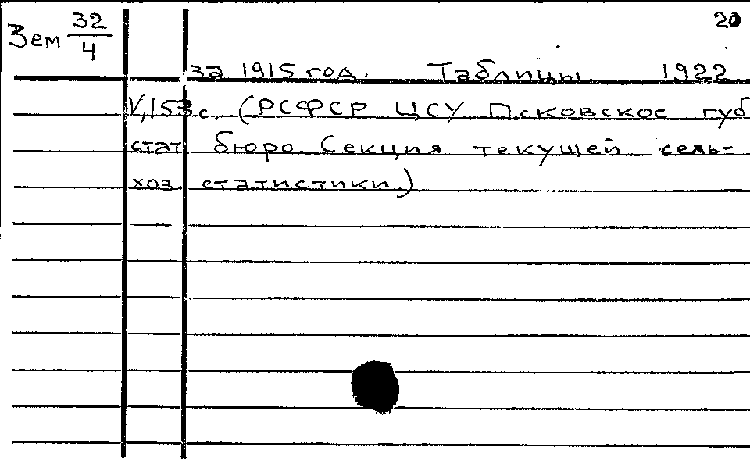 Зем 32/4
20
за 1915 год. Таблицы 1922
V, 153 с. (РСФСР ЦСУ Псковское губ
стат бюро Секция текущей сель-
хоз статистики.)